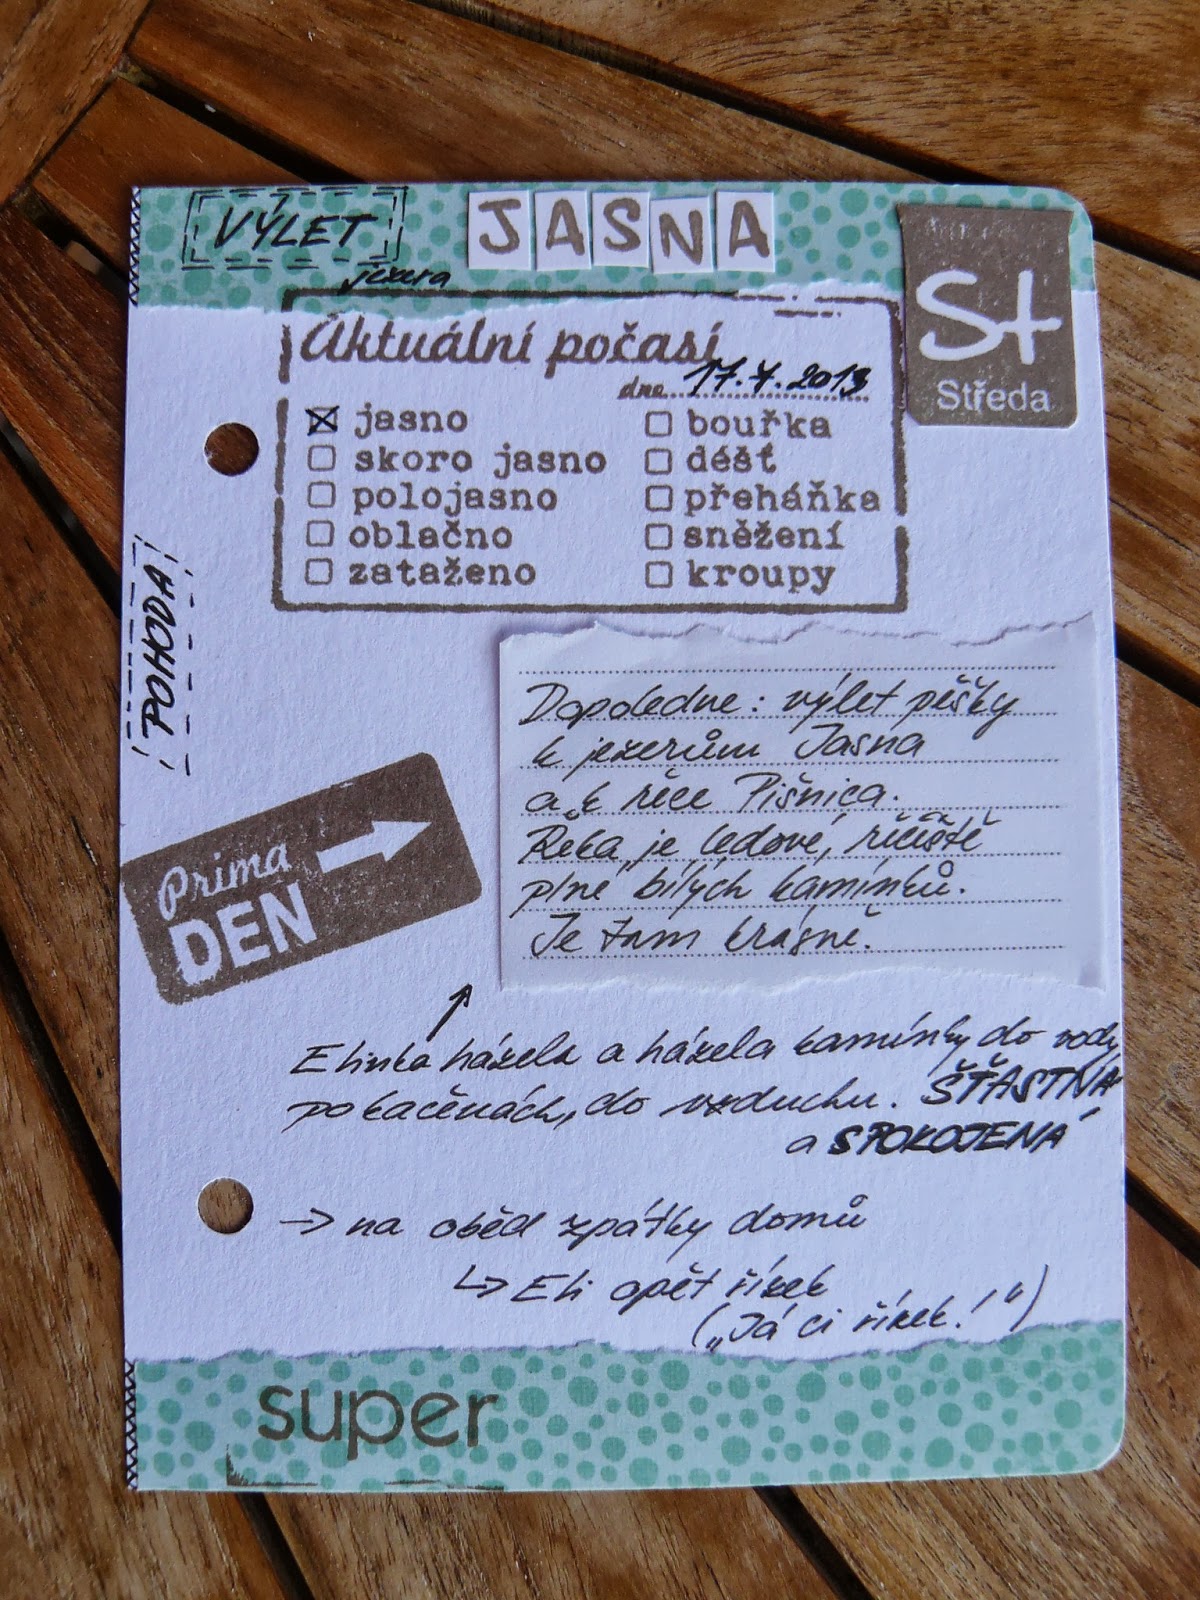 VÝLET
jezera
JASNA
St
Středa
Aktuální počasí
dne 17.7.2013
☒ jasno
☐ skoro jasno
☐ polojasno
☐ oblačno
☐ zataženo
☐ bouřka
☐ déšť
☐ přeháňka
☐ sněžení
☐ kroupy
POHODA
Dopoledne: výlet pěšky
k jezerům Jasna
a k řece Pišnica.
Řeka je ledové, řičiště
plné bílých kamínků.
Je tam krásně.
Prima
DEN
Elinka házela a házela kamínky do vody,
po kačenách, do vzduchu. ŠŤASTNÁ
a SPOKOJENÁ
→ na oběd zpátky domů
↳ Eli opět řízek
(„Já ci řízek!“)
super